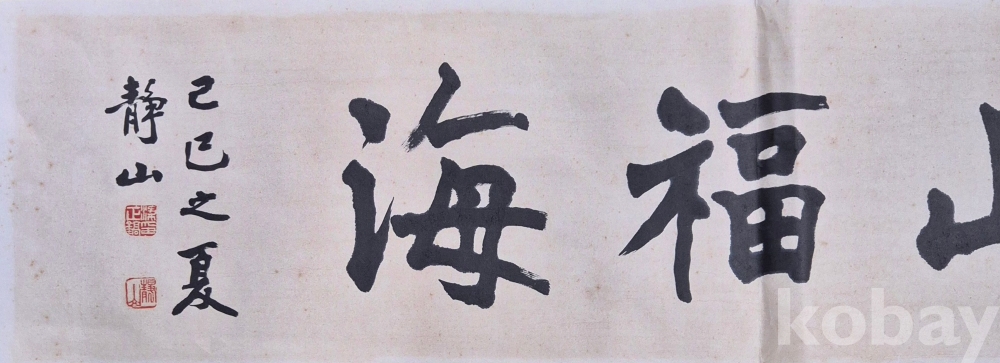 山福海
己巳之夏
靜山
靜山
kobay